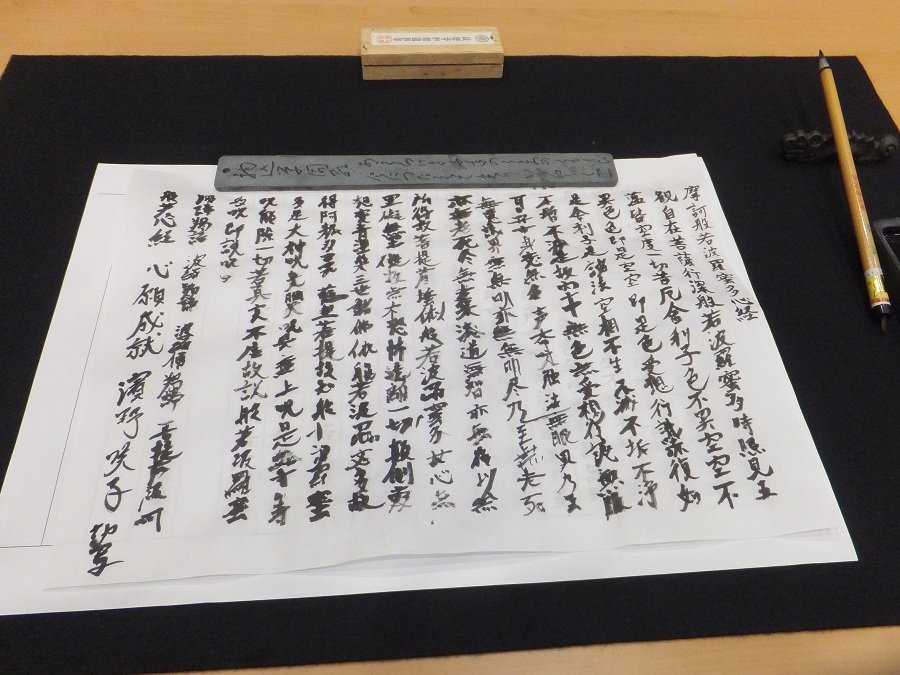 摩訶般若波羅蜜多心経
観自在菩薩行深般若波羅蜜多時照見五
蘊皆空度一切苦厄舎利子色不異空空不
異色色即是空空即是色受想行識亦復如
是舎利子是諸法空相不生不滅不垢不浄
不増不減是故空中無色無受想行識無眼
耳鼻舌身意無色声香味触法無眼界乃至
無意識界無無明亦無無明尽乃至無老死
亦無老死尽無苦集滅道無智亦無得以無
所得故菩提薩埵依般若波羅蜜多故心無
罣礙無罣礙故無有恐怖遠離一切顛倒夢
想究竟涅槃三世諸仏依般若波羅蜜多故
得阿耨多羅三藐三菩提故知般若波羅蜜
多是大神呪是大明呪是無上呪是無等等
呪能除一切苦真実不虚故説般若波羅蜜
多呪即説呪曰
羯諦羯諦 波羅羯諦 波羅僧羯諦 菩提薩婆訶
般若心経 心願成就 濱野咲子